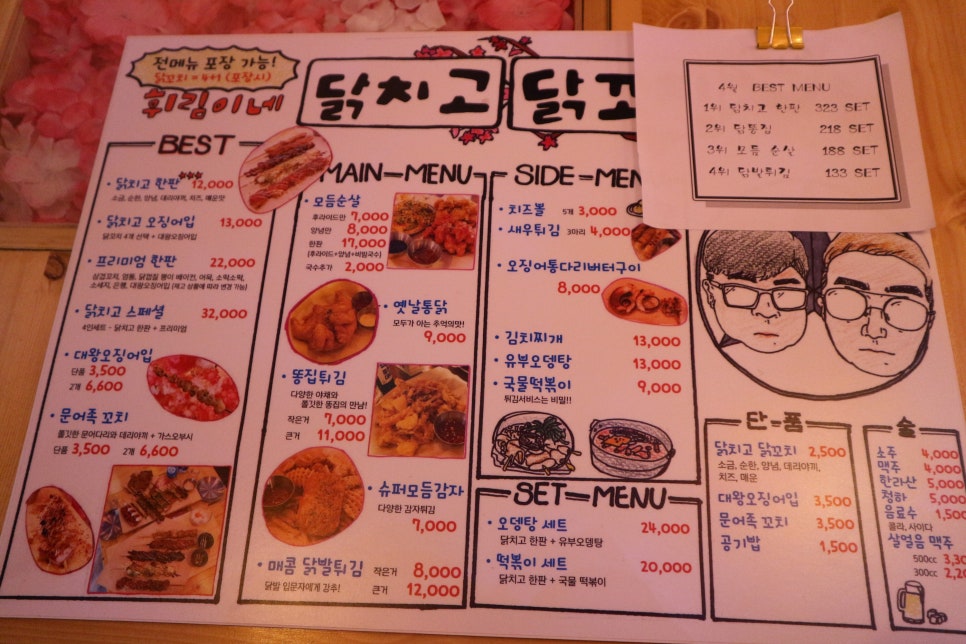 전메뉴 포장 가능!
닭꼬치 = 4+1 (포장시)
휘림이네
닭치고 닭꼬
BEST
닭치고 한판 12,000
소금, 순한, 양념, 데리야끼, 치즈, 매운맛
닭치고 오징어입 13,000
닭꼬치 4개 선택 + 대왕오징어입
프리미엄 한판 22,000
삼겹꼬치, 염통, 닭껍질 팽이 베이컨, 어묵, 소떡소떡,
소세지, 은행, 대왕오징어입 (재고 상황에 따라 변경 가능)
닭치고 스페셜 32,000
4인세트 - 닭치고 한판 + 프리미엄
대왕오징어입
단품 3,500
2개 6,600
문어족 꼬치
쫄깃한 문어다리와 데리야끼 + 가스오부시
단품 3,500 2개 6,600
MAIN-MENU
모듬순살
후라이드만 7,000
양념만 8,000
한판 17,000
(후라이드+양념+비빔국수)
국수추가 2,000
옛날통닭
모두가 아는 추억의맛!
9,000
똥집튀김
다양한 야채와
쫄깃한 똥집의 만남!
작은거 7,000
큰거 11,000
슈퍼모듬감자
다양한 감자튀김
7,000
매콤 닭발튀김 작은거 8,000
닭발 입문자에게 강추! 큰거 12,000
SIDE-MEN
치즈볼 5개 3,000
새우튀김 3마리 4,000
오징어통다리버터구이
8,000
김치찌개 13,000
유부오뎅탕 13,000
국물떡볶이 9,000
튀김서비스는 비밀!!
SET-MENU
오뎅탕 세트 24,000
닭치고 한판 + 유부오뎅탕
떡볶이 세트 20,000
닭치고 한판 + 국물 떡볶이
4월 BEST MENU
1위 닭치고 한판 323 SET
2위 닭똥집 218 SET
3위 모듬 순살 188 SET
4위 닭발튀김 133 SET
단-품
닭치고 닭꼬치 2,500
소금, 순한, 양념, 데리야끼,
치즈, 매운
대왕오징어입 3,500
문어족 꼬치 3,500
공기밥 1,500
술
소주 4,000
맥주 4,000
한라산 5,000
청하 5,000
음료수 1,500
콜라, 사이다
살얼음 맥주
500cc 3,30
300cc 2,20